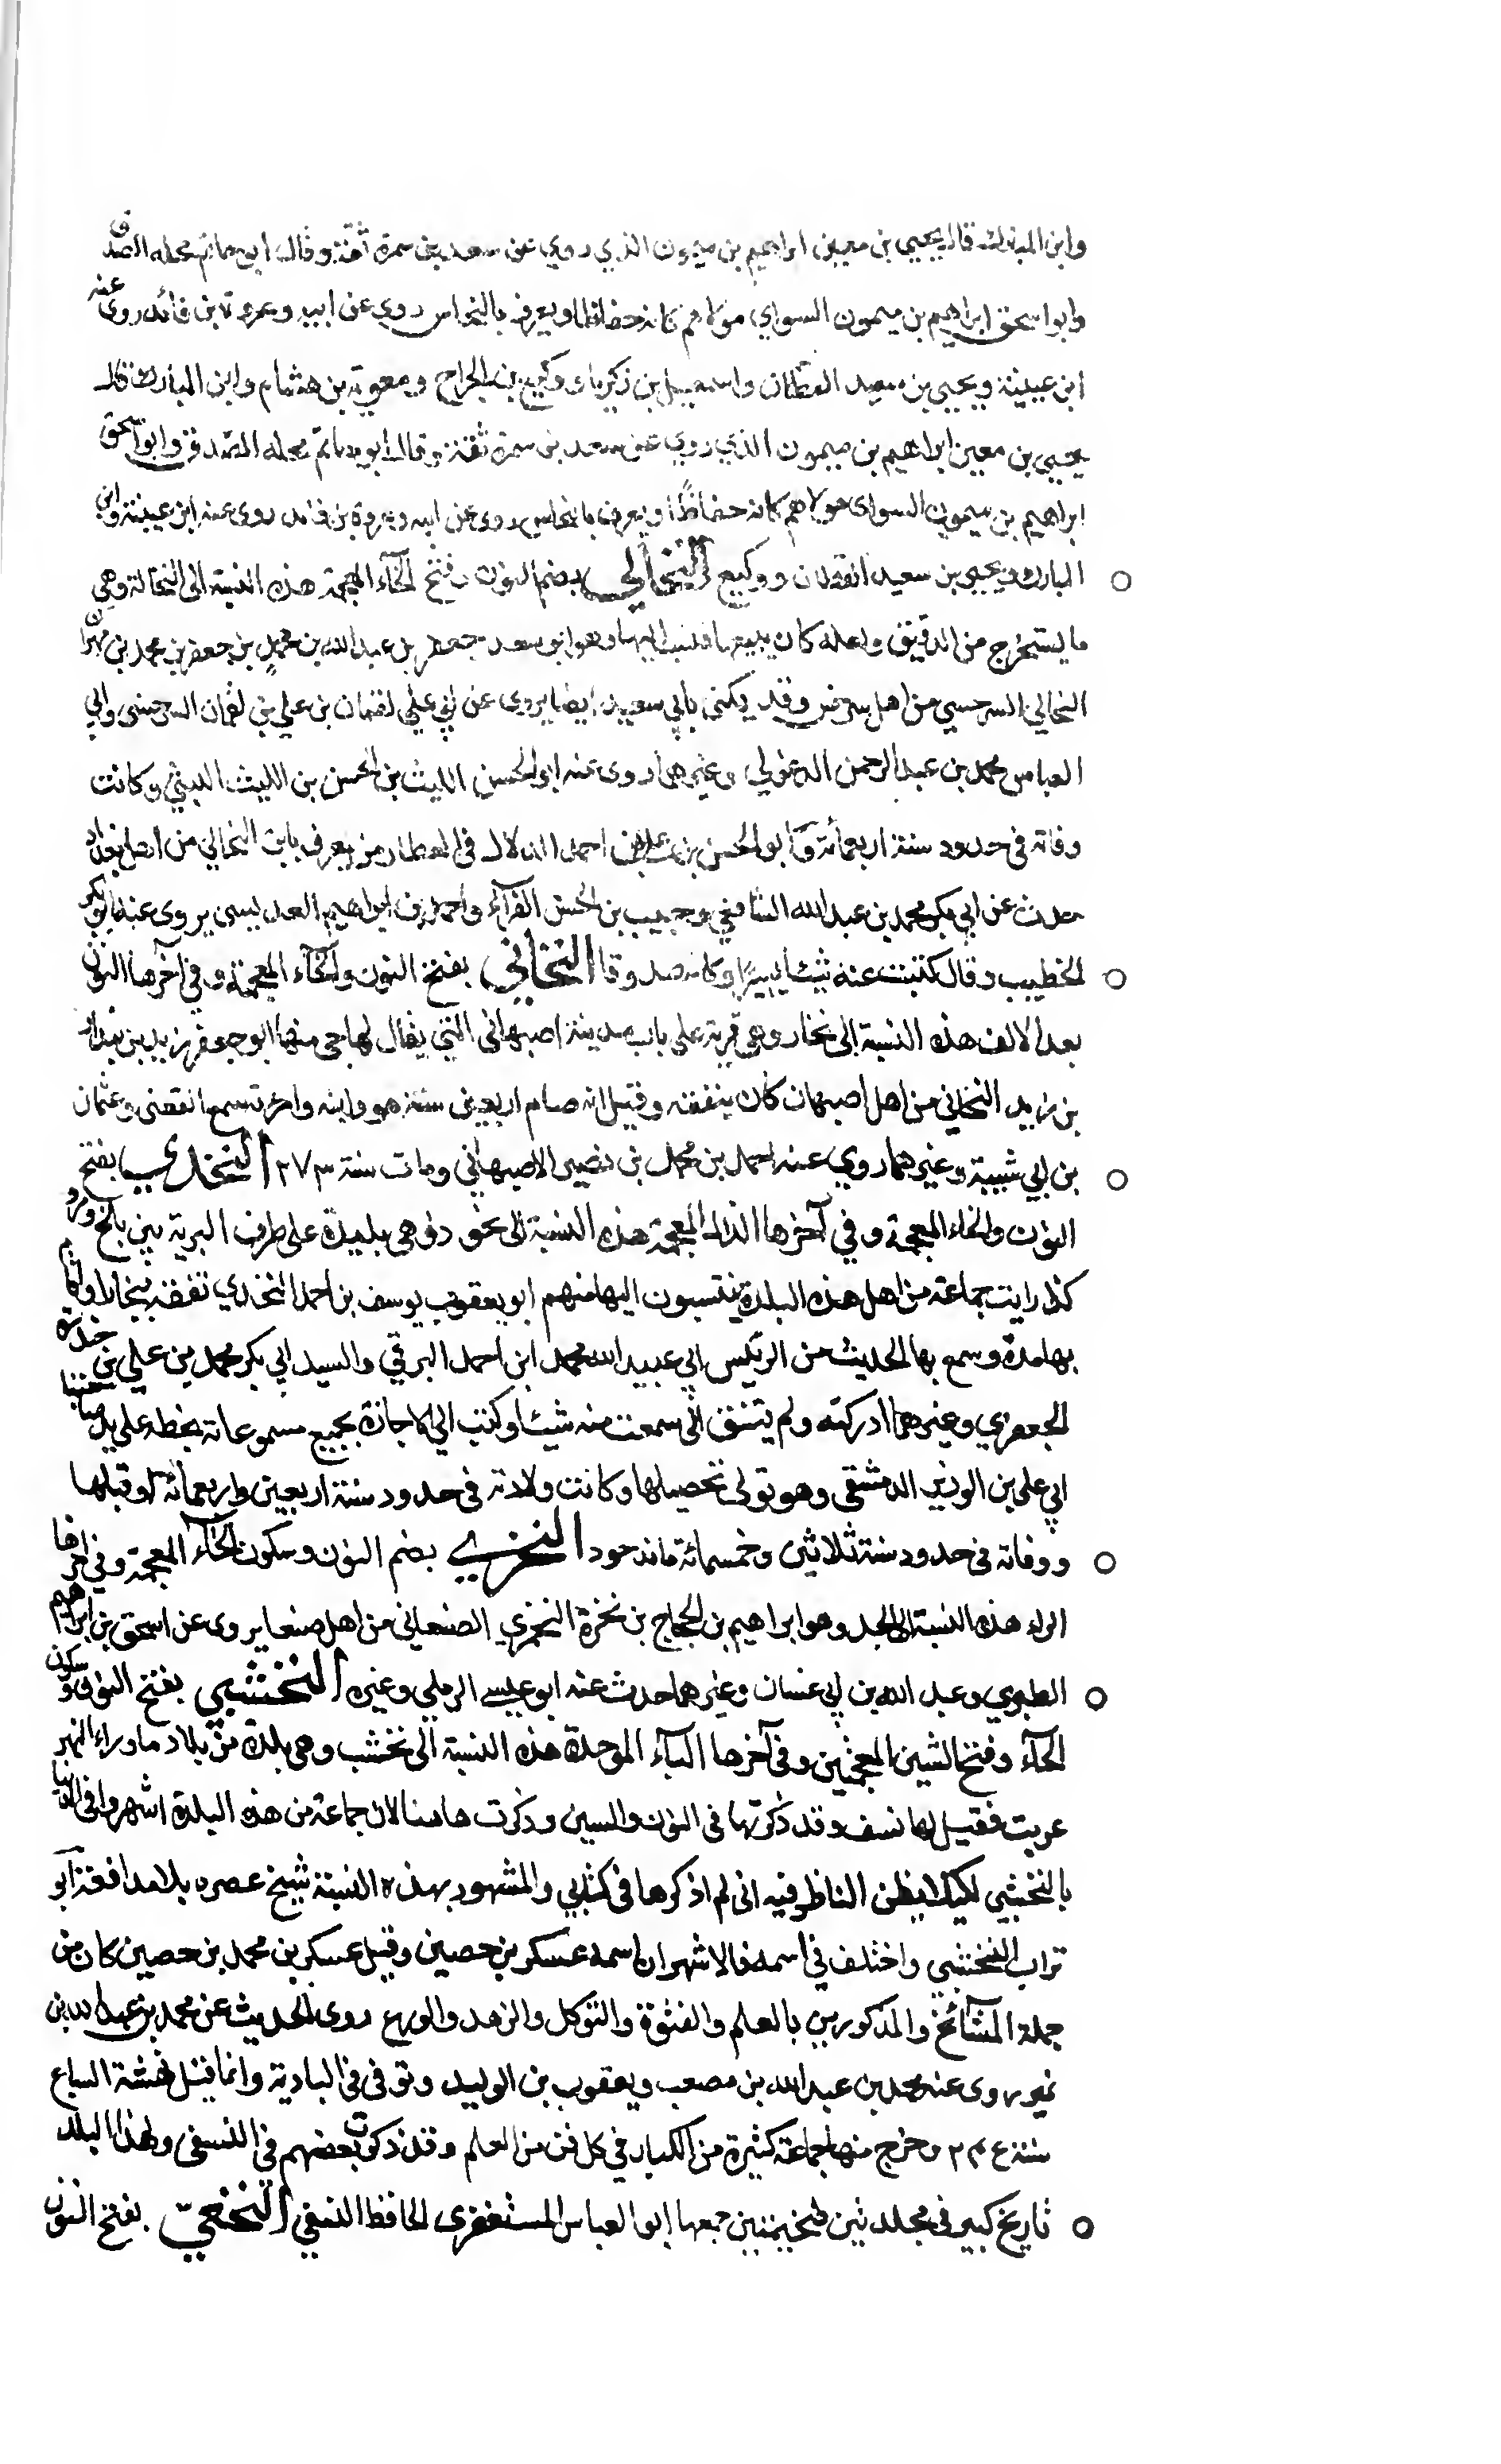 وابن المبارك قال يحيى بن معين ابراهيم بن ميمون الذي روي عن سعد بن سمرة ثقة وقال ابو حاتم محله الصدق
وابو اسحق ابراهيم بن ميمون السواي مولاهم كان حناطا ويعرف بالنحاس روي عن ابيه وعروة بن فائد روى عنه
ابن عيينة ويحيى بن سعيد القطان واسمعيل بن زكرياء ووكيع بن الجراح ومعوية بن هشام وابن المبارك قال
يحيى بن معين ابراهيم بن ميمون الذي روي عن سعد بن سمرة ثقة وقال ابو حاتم محله الصدق وابو اسحق
ابراهيم بن ميمون السواى مولاهم كان حناطًا ويعرف بالنحاس روى عن ابيه وعروة بن فائد روى عنه ابن عيينة وابن
المبارك ويحيى بن سعيد القطان ووكيع النخالي بضم النون وفتح الخاء المعجمة هذه النسبة الى النخالة وهي
ما يستخرج من الدقيق ولعله كان يبيعها فنسب اليها وهو ابو سعد جعفر بن عبد الله بن محمد بن جعفر بن محمد بن
النخالي السرخسي من اهل سرخس وقد يكنى بابي سعيد ايضا يروى عن ابي علي لقمان بن علي بن لقمان السرخسى وابي
العباس محمد بن عبد الرحمن الدغولي وغيرهما روى عنه ابو الحسن الليث بن الحسن بن الليث الليثي وكانت
وفاته فى حدود سنة اربعمائة وابو الحسن بن احمد الدلال في العطارين يعرف بابن النخالي من اهل بغداد
حدث عن ابي بكر محمد بن عبد الله الشافعي وحبيب بن الحسن القزاز واحمد بن ابراهيم يروى عنه ابو بكر
الخطيب وقال كتبت عنه شيئا يسيرا وكان صدوقا النخاني بفتح النون والخاء المعجمة وفي آخرها النون
بعد الالف هذه النسبة الى نخان وهي قرية على باب مدينة اصبهان التي يقال لها جى منها ابو جعفر زيد بن بندار
بن زيد النخاني من اهل اصبهان كان يتفقه وقيل انه صام اربعين سنة هو وابنه وامرته سمع القعنبى وعثمان
بن ابي شيبة وغيرهما روي عنه احمد بن محمد بن نصير الاصبهاني ومات سنة ٢٧٣ النخذي بفتح
النون والخاء المعجمة وفي آخرها الذال المعجمة هذه النسبة الى نخوذ وهي بليدة على طرف البرية بين بلخ ومرو
كذا رايت جماعة من اهل هذه البلدة ينتسبون اليها منهم ابو يعقوب يوسف بن احمد النخذي تفقه ببخارا واقام
بها مدة وسمع بها الحديث من الرئيس ابي عبيد الله محمد ابن احمد البرقي والسيد ابي بكر محمد بن علي بن حيدرة
الجعفري وغيرهما ادركته ولم يتفق اني سمعت منه شيئا وكتب الي الاجازة بجميع مسموعاته بخطه على يد صاحبنا
ابي على بن الوزير الدمشقى وهو تولى تحصيلها وكانت ولادته فى حدود سنة اربعين واربعمائة او قبلها
ووفاته فى حدود سنة ثلاثين وخمسمائة النخري بضم النون وسكون الخاء المعجمة وفي اخرها
الراء هذه النسبة الى الجد وهو ابراهيم بن الحجاج بن نخرة النخري الصنعاني من اهل صنعا يروى عن اسحق بن ابراهيم
الطبري وعبد الله بن ابي غسان وغيرهما حدث عنه ابو عيسى الرملي وغيره النخشبي بفتح النون وسكون
الخاء وفتح الشين المعجمتين وفى آخرها الباء الموحدة هذه النسبة الى نخشب وهي بلدة من بلاد ما وراء النهر
عربت فقيل لها نسف وقد ذكرتها فى النون والسين وذكرت هاهنا لان جماعة من هذه البلدة اشهروا فى الدنيا
بالنخشبي لكيلا يظن الناظر فيه اني لم اذكرها فى كتابي والمشهور بهذه النسبة شيخ عصره بلا مدافعة ابو
تراب النخشبي واختلف في اسمه فالاشهر ان اسمه عسكر بن حصين وقيل عسكر بن محمد بن حصين كان من
جملة المشائخ والمذكورين بالعلم والفتوة والتوكل والزهد والورع روى الحديث عن محمد بن عبد الله بن
نمير روى عنه محمد بن عبد الله بن مصعب ويعقوب بن الوليد وتوفى فى البادية وانما قيل نهشته السباع
سنة ٢٤٥ وخرج منها جماعة كثيرة من الكبار في كل فن من العلم وقد ذكرت بعضهم في النسفى ولهذا البلد
تاريخ كبير فى مجلدتين ضخيمتين جمعها ابو العباس المستغفرى الحافظ النسفي النخعي بفتح النون